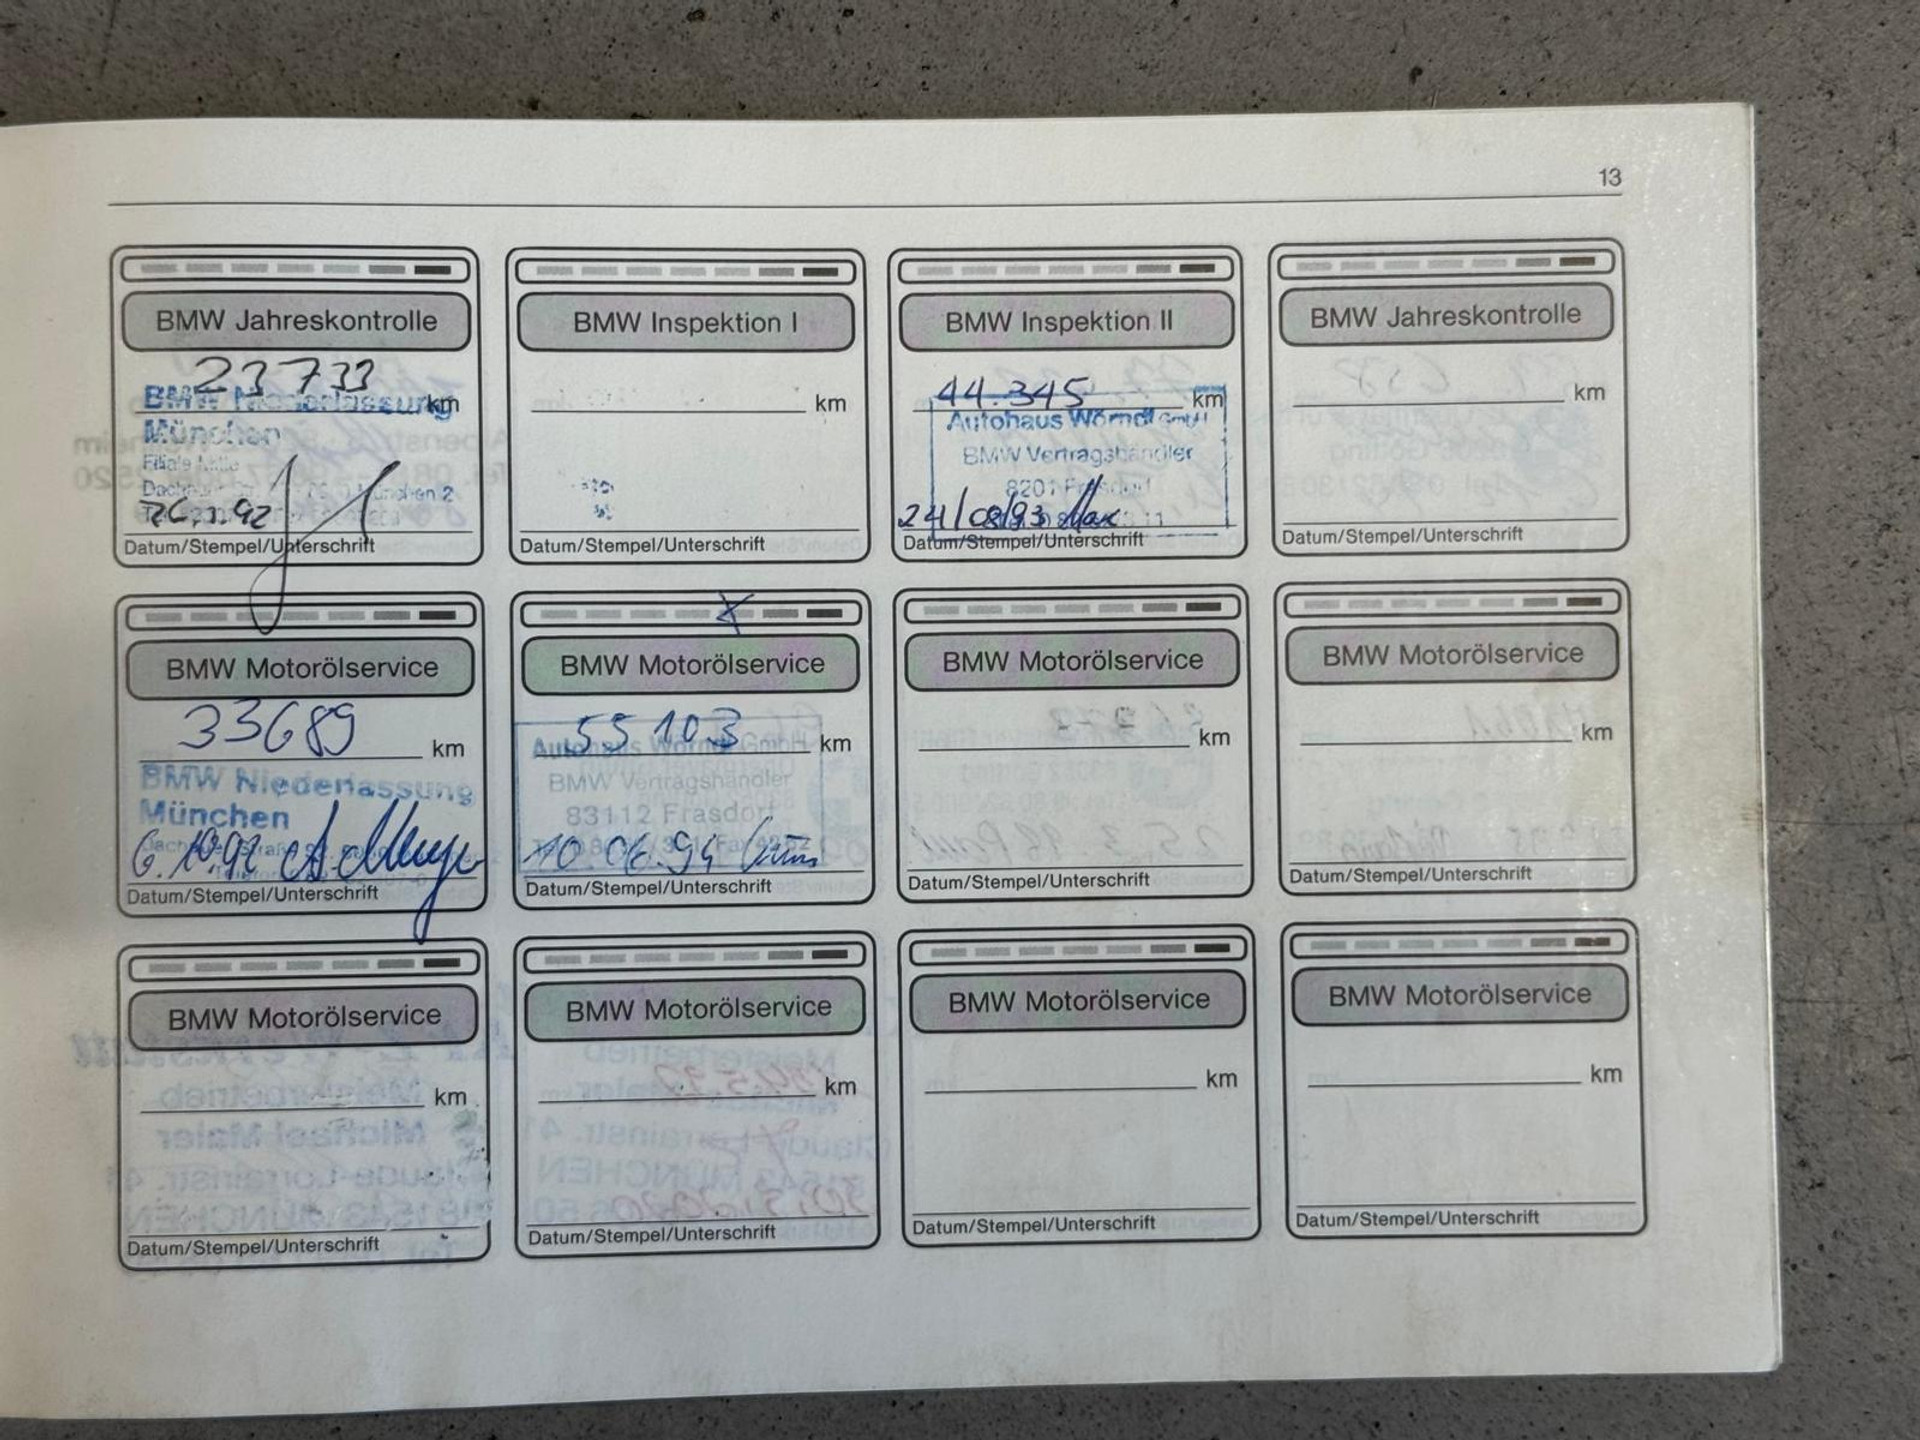 13
BMW Jahreskontrolle
23733
km
BMW Niederlassung
München
Filiale
München 2
92
Datum/Stempel/Unterschrift
BMW Inspektion I
km
Datum/Stempel/Unterschrift
BMW Inspektion II
44.345
km
Autohaus Wörndl GmbH
BMW Vertragshändler
8201 Frasdorf
24/08/93
Datum/Stempel/Unterschrift
BMW Jahreskontrolle
km
Datum/Stempel/Unterschrift
BMW Motorölservice
33689
km
BMW Niederlassung
München
6.10.92
Datum/Stempel/Unterschrift
BMW Motorölservice
55103
km
Autohaus Wörndl GmbH
BMW Vertragshändler
83112 Frasdorf
10.06.94
Datum/Stempel/Unterschrift
BMW Motorölservice
km
Datum/Stempel/Unterschrift
BMW Motorölservice
km
Datum/Stempel/Unterschrift
BMW Motorölservice
km
Datum/Stempel/Unterschrift
BMW Motorölservice
km
Datum/Stempel/Unterschrift
BMW Motorölservice
km
Datum/Stempel/Unterschrift
BMW Motorölservice
km
Datum/Stempel/Unterschrift